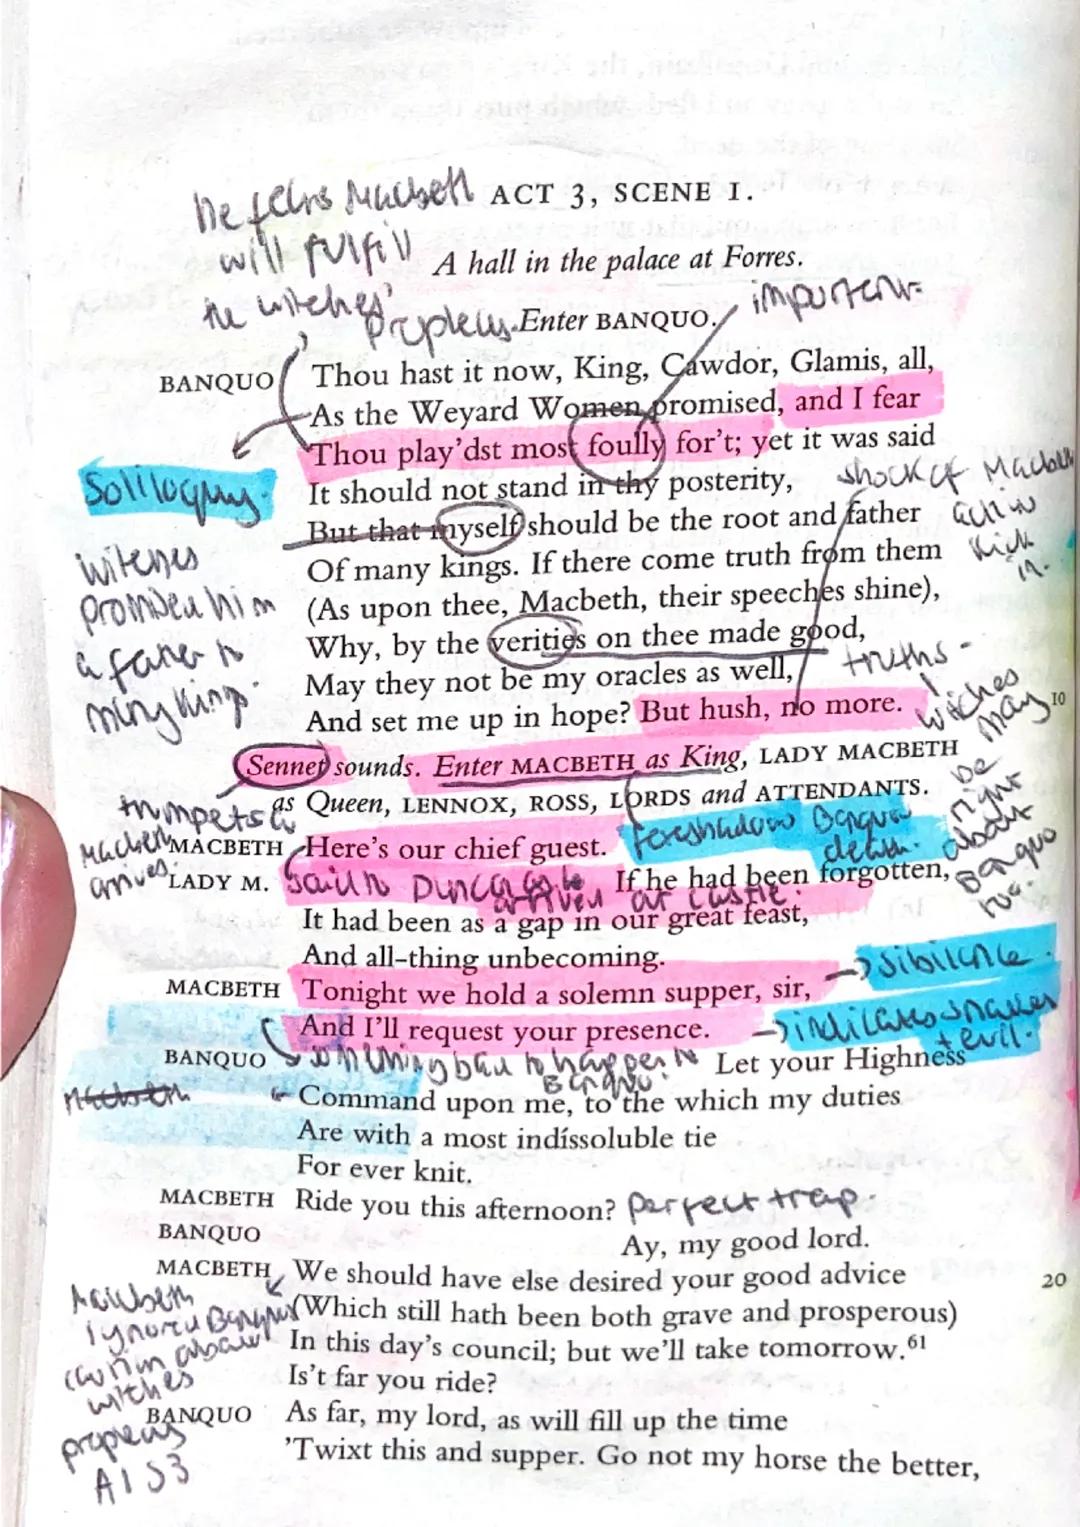 he fears Macbeth
will fulfill
the witches'
ACT 3, SCENE 1.
A hall in the palace at Forres.
important
Enter BANQUO.
BANQUO Thou hast it now, King, Cawdor, Glamis, all,
As the Weyard Women promised, and I fear
Thou play'dst most foully for't; yet it was said
Soliloquy.
It should not stand in thy posterity,
shock of Macbeth
But that myself should be the root and father
kick
in.
witches
Of many kings. If there come truth from them
promised him
(As upon thee, Macbeth, their speeches shine),
a father to
Why, by the verities on thee made good,
truths -
many kings.
May they not be my oracles as well,
And set me up in hope? But hush, no more.
10
witches
may
be
right
about
Banquo
too.
Sennet sounds. Enter MACBETH as King, LADY MACBETH
as Queen, LENNOX, ROSS, LORDS and ATTENDANTS.
trumpets as
Macbeth
arrives
foreshadow Banquo
death.
MACBETH Here's our chief guest.
LADY M. If he had been forgotten,
said to Duncan
arrived at castle.
It had been as a gap in our great feast,
And all-thing unbecoming.
→ sibilance
MACBETH Tonight we hold a solemn supper, sir,
And I'll request your presence.
→ indicates snakes
+ evil.
BANQUO Let your Highness
something bad to happen to
Banquo.
Command upon me, to the which my duties
Are with a most indíssoluble tie
For ever knit.
MACBETH Ride you this afternoon? perfect trap.
BANQUO Ay, my good lord.
MACBETH We should have else desired your good advice
20
(Which still hath been both grave and prosperous)
In this day's council; but we'll take tomorrow.61
Is't far you ride?
Macbeth
ignored Banquo's
about
witches
A1 S3
BANQUO As far, my lord, as will fill up the time
'Twixt this and supper. Go not my horse the better,